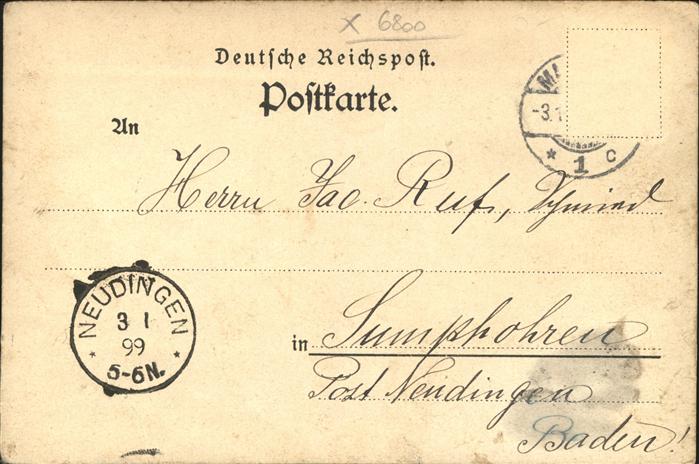 x 6800
Deutsche Reichspost.
Postkarte.
An
-3.1
* 1 c
Herrn Jac. Ruf, Schmied
NEUDINGEN
3 1
99
5-6N.
in Sumpfohren
Post Neudingen
Baden!